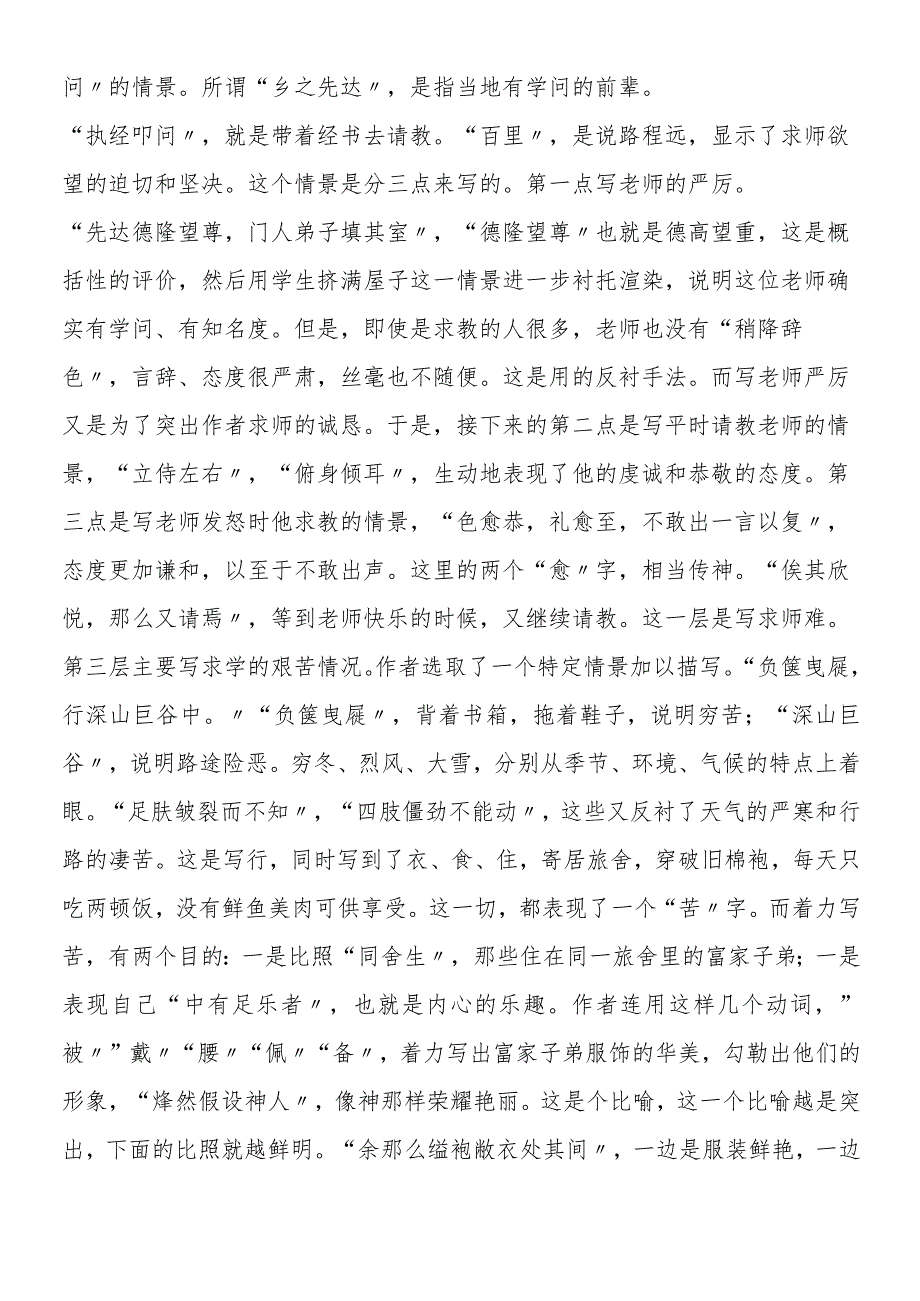 问〃的情景。所谓“乡之先达〃，是指当地有学问的前辈。
“执经叩问〃，就是带着经书去请教。“百里〃，是说路程远，显示了求师欲
望的迫切和坚决。这个情景是分三点来写的。第一点写老师的严厉。
“先达德隆望尊，门人弟子填其室〃，“德隆望尊〃也就是德高望重，这是概
括性的评价，然后用学生挤满屋子这一情景进一步衬托渲染，说明这位老师确
实有学问、有知名度。但是，即使是求教的人很多，老师也没有“稍降辞
色〃，言辞、态度很严肃，丝毫也不随便。这是用的反衬手法。而写老师严厉
又是为了突出作者求师的诚恳。于是，接下来的第二点是写平时请教老师的情
景，“立侍左右〃，“俯身倾耳〃，生动地表现了他的虔诚和恭敬的态度。第
三点是写老师发怒时他求教的情景，“色愈恭，礼愈至，不敢出一言以复〃，
态度更加谦和，以至于不敢出声。这里的两个“愈〃字，相当传神。“俟其欣
悦，那么又请焉〃，等到老师快乐的时候，又继续请教。这一层是写求师难。
第三层主要写求学的艰苦情况。作者选取了一个特定情景加以描写。“负箧曳屣，
行深山巨谷中。〃“负箧曳屣〃，背着书箱，拖着鞋子，说明穷苦；“深山巨
谷〃，说明路途险恶。穷冬、烈风、大雪，分别从季节、环境、气候的特点上着
眼。“足肤皱裂而不知〃，“四肢僵劲不能动〃，这些又反衬了天气的严寒和行
路的凄苦。这是写行，同时写到了衣、食、住，寄居旅舍，穿破旧棉袍，每天只
吃两顿饭，没有鲜鱼美肉可供享受。这一切，都表现了一个“苦〃字。而着力写
苦，有两个目的：一是比照“同舍生〃，那些住在同一旅舍里的富家子弟；一是
表现自己“中有足乐者〃，也就是内心的乐趣。作者连用这样几个动词，”
被〃”戴〃“腰〃“佩〃“备〃，着力写出富家子弟服饰的华美，勾勒出他们的
形象，“烽然假设神人〃，像神那样荣耀艳丽。这是个比喻，这一个比喻越是突
出，下面的比照就越鲜明。“余那么缊袍敝衣处其间〃，一边是服装鲜艳，一边